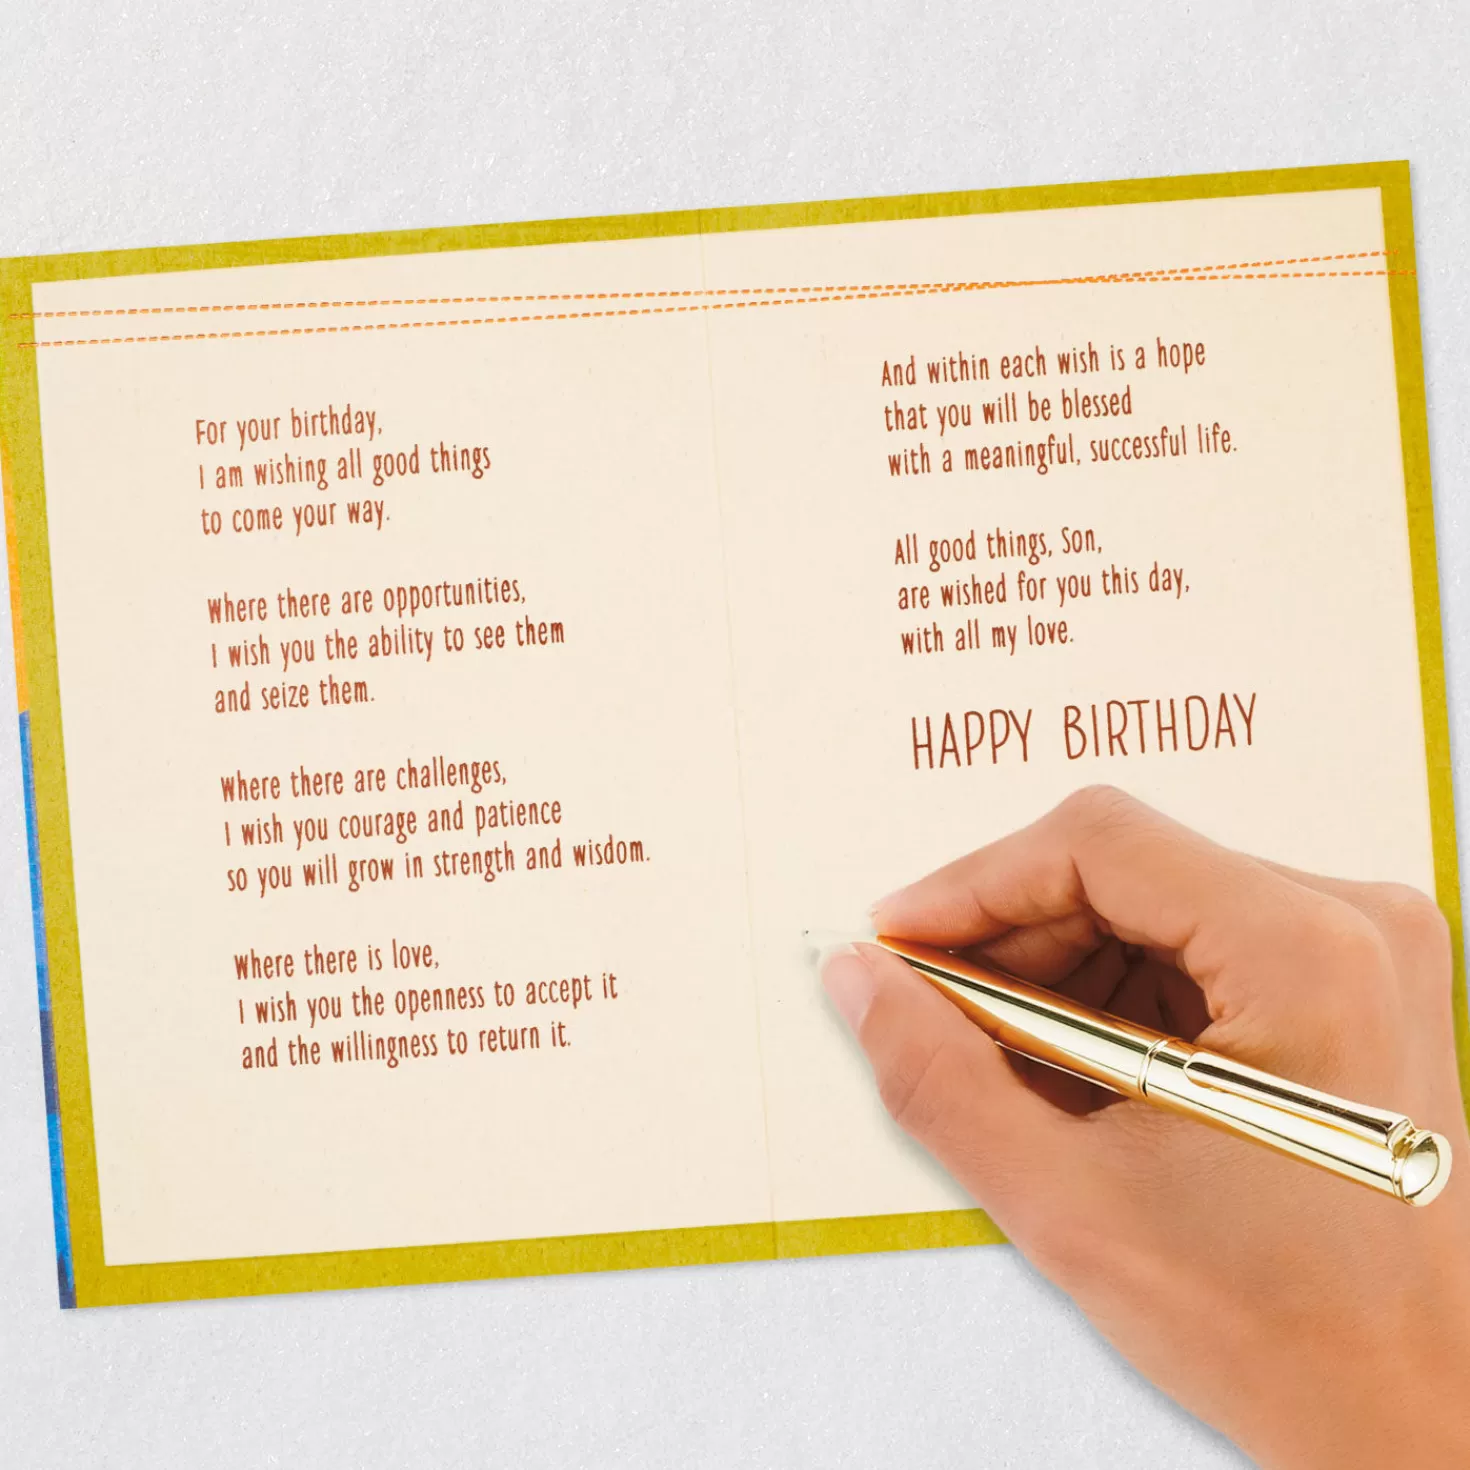 For your birthday,
I am wishing all good things
to come your way.
Where there are opportunities,
I wish you the ability to see them
and seize them.
Where there are challenges,
I wish you courage and patience
so you will grow in strength and wisdom.
Where there is love,
I wish you the openness to accept it
and the willingness to return it.
And within each wish is a hope
that you will be blessed
with a meaningful, successful life.
All good things, Son,
are wished for you this day,
with all my love.
HAPPY BIRTHDAY